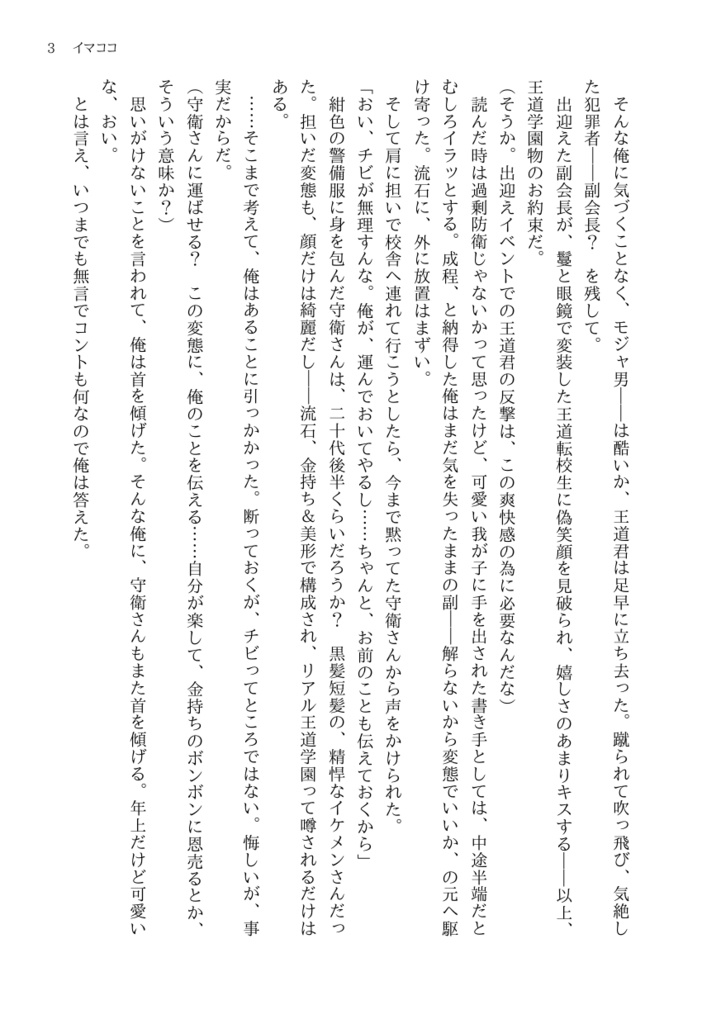 3 イマココ
そんな俺に気づくことなく、モジャ男――は酷いか、王道君は足早に立ち去った。蹴られて吹っ飛び、気絶し
た犯罪者――副会長？　を残して。
出迎えた副会長が、鬘と眼鏡で変装した王道転校生に偽笑顔を見破られ、嬉しさのあまりキスする――以上、
王道学園物のお約束だ。
（そうか。出迎えイベントでの王道君の反撃は、この爽快感の為に必要なんだな）
読んだ時は過剰防衛じゃないかって思ったけど、可愛い我が子に手を出された書き手としては、中途半端だと
むしろイラッとする。成程、と納得した俺はまだ気を失ったままの副――解らないから変態でいいか、の元へ駆
け寄った。流石に、外に放置はまずい。
そして肩に担いで校舎へ連れて行こうとしたら、今まで黙ってた守衛さんから声をかけられた。
「おい、チビが無理すんな。俺が、運んでおいてやるし……ちゃんと、お前のことも伝えておくから」
紺色の警備服に身を包んだ守衛さんは、二十代後半くらいだろうか？　黒髪短髪の、精悍なイケメンさんだっ
た。担いだ変態も、顔だけは綺麗だし――流石、金持ち＆美形で構成され、リアル王道学園って噂されるだけは
ある。
……そこまで考えて、俺はあることに引っかかった。断っておくが、チビってところではない。悔しいが、事
実だからだ。
（守衛さんに運ばせる？　この変態に、俺のことを伝える……自分が楽して、金持ちのボンボンに恩売るとか、
そういう意味か？）
思いがけないことを言われて、俺は首を傾げた。そんな俺に、守衛さんもまた首を傾げる。年上だけど可愛い
な、おい。
とは言え、いつまでも無言でコントも何なので俺は答えた。